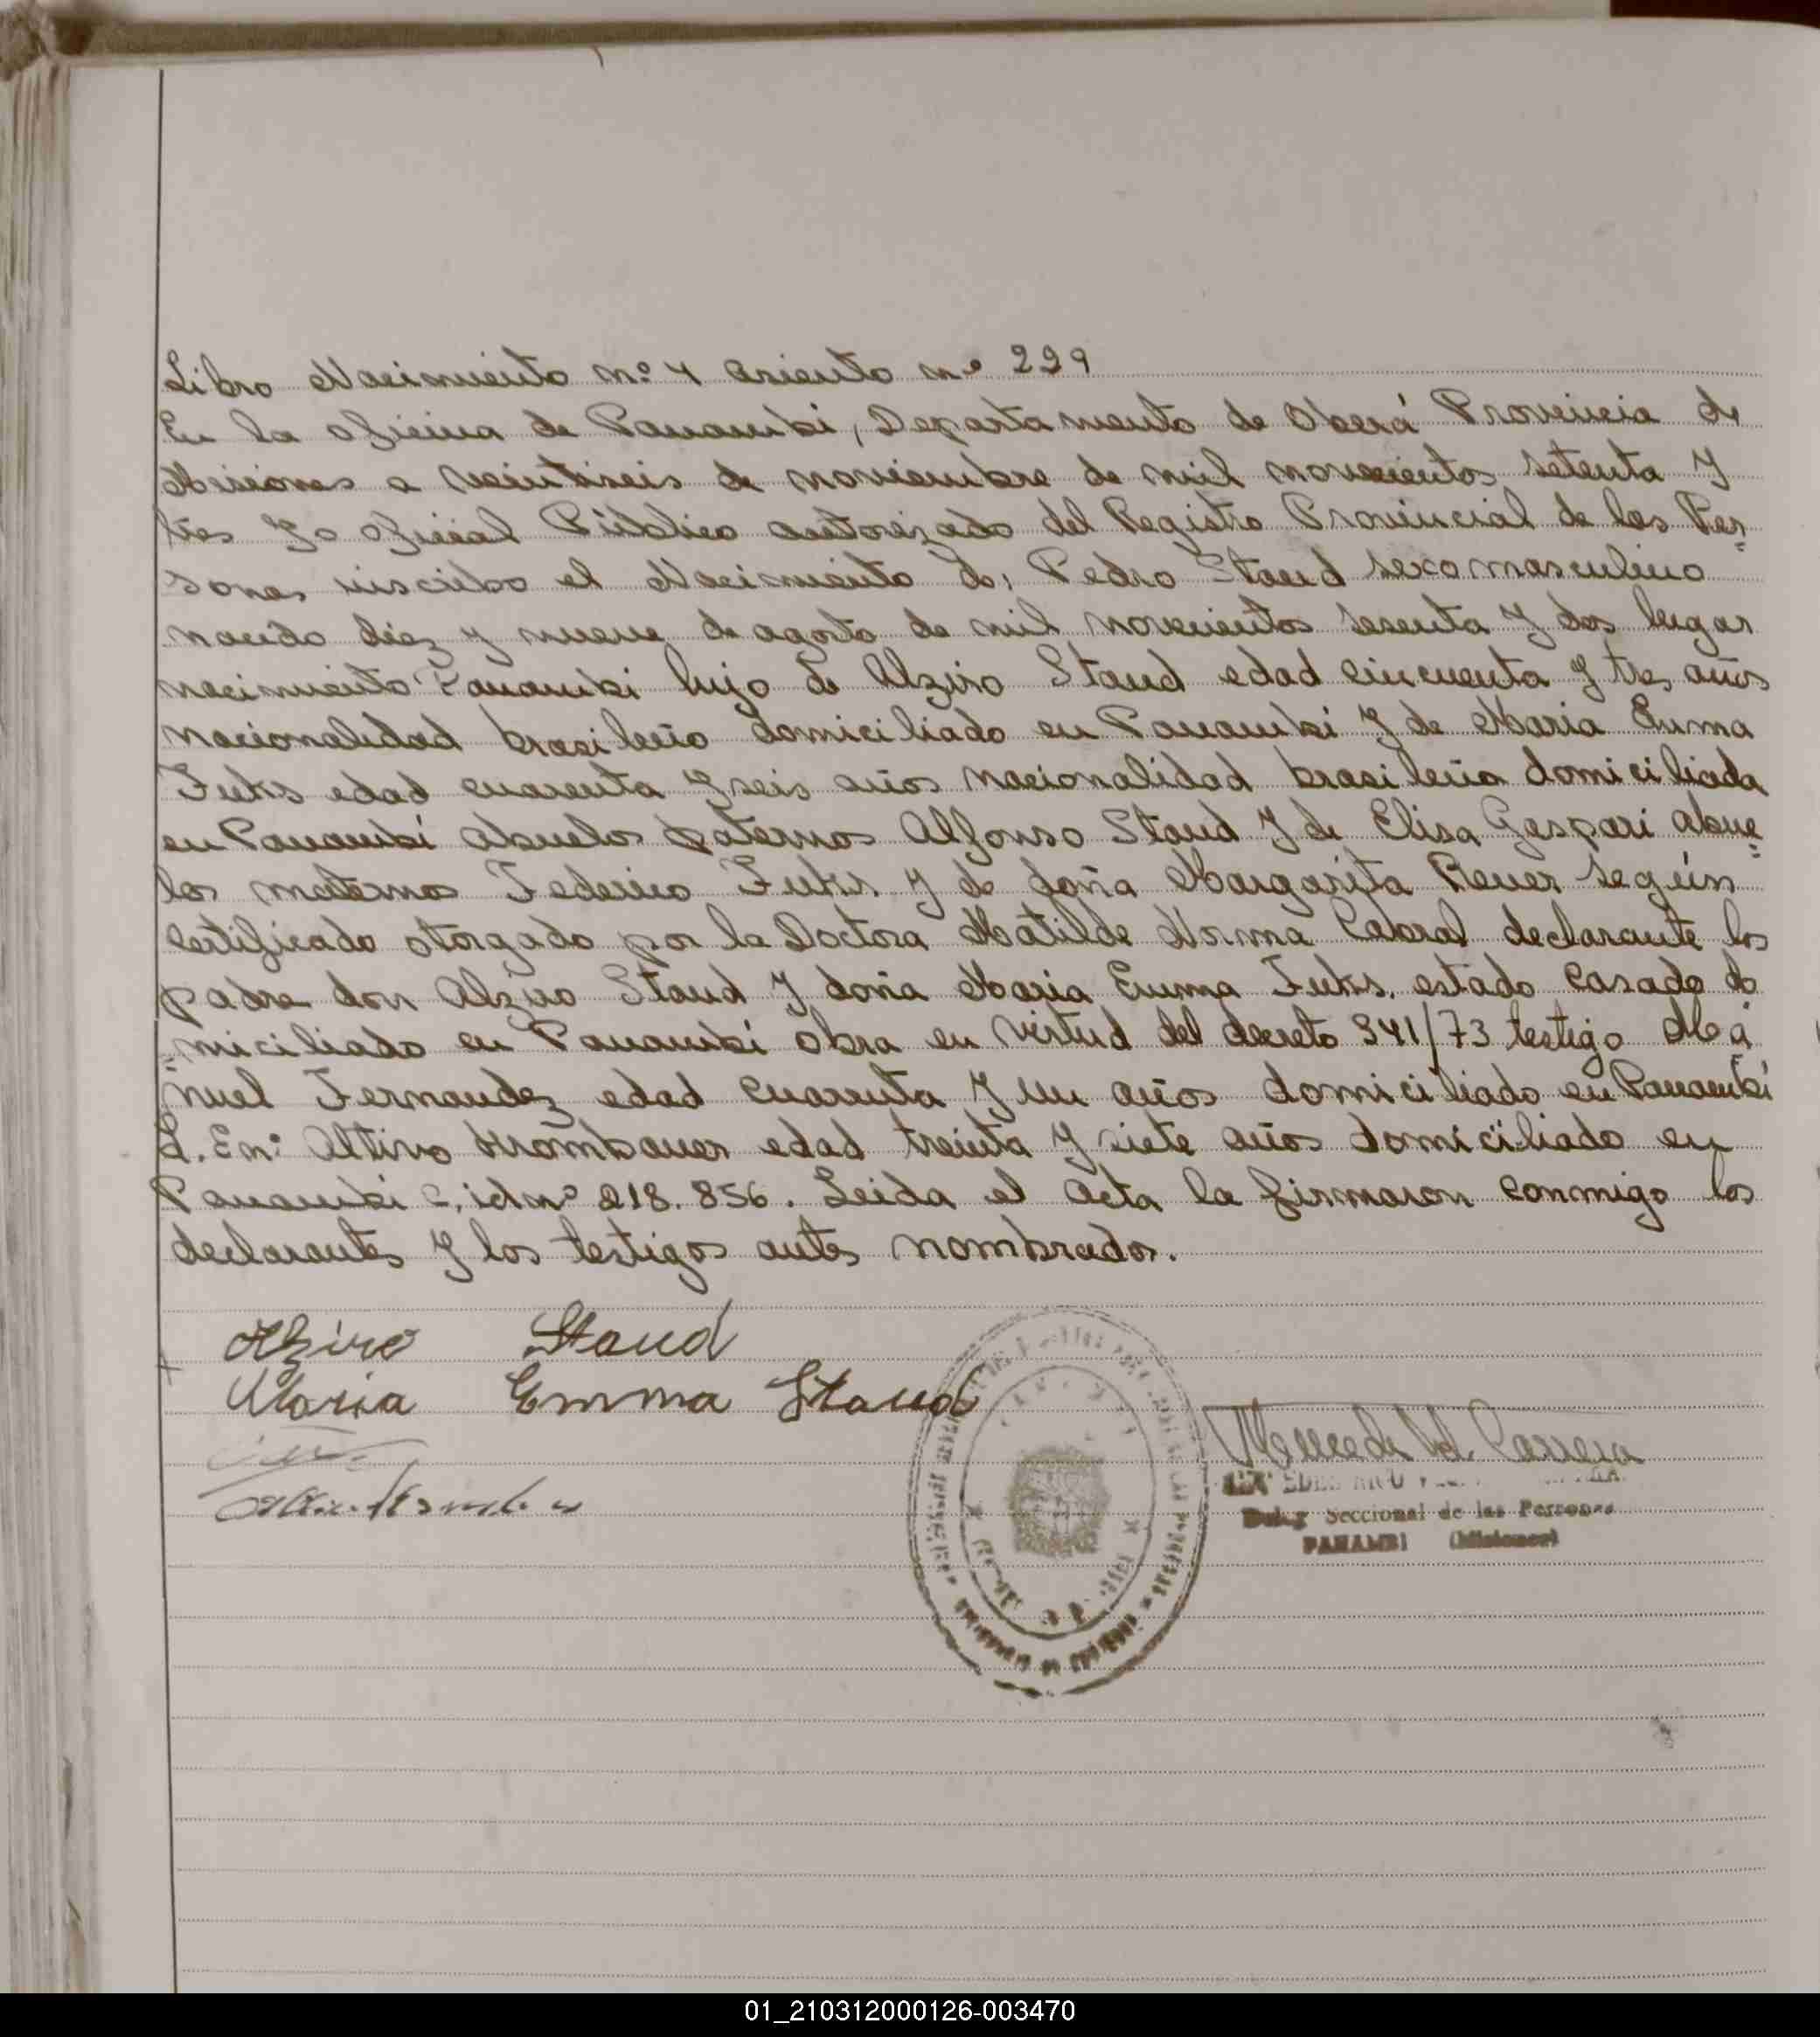 Libro Nacimiento nº 4 asiento nº 229
En la oficina de Panambi, Departamento de Oberá Provincia de
Misiones a veintiseis de noviembre de mil novecientos setenta y
tres Yo oficial Público autorizado del Registro Provincial de las Per=
sonas inscribo el Nacimiento de, Pedro Staud sexo masculino
nacido diez y nueve de agosto de mil novecientos sesenta y dos lugar
nacimiento Panambi hijo de Alziro Staud edad cincuenta y tres años
nacionalidad brasileño domiciliado en Panambi y de Maria Emma
Fuks edad cuarenta y seis años nacionalidad brasileña domiciliada
en Panambí abuelos paternos Alfonso Staud y de Elisa Gaspari abue=
los maternos Federico Fuks. y de doña Margarita Reuer según
certificado otorgado por la Doctora Matilde Norma Cabral declarante los
padre don Alziro Staud y doña Maria Emma Fuks. estado casado do
=miciliado en Panambí obra en virtud del decreto 341/73 testigo Ma
nuel Fernandez edad cuarenta y un años domiciliado en Panambí
L. En: Altivo Krombauer edad treinta y siete años domiciliado en
Panambi C. id nº 218.856. Leida el acta la firmaron conmigo los
declarantes y los testigos antes nombrados.
Alziro Staud
Maria Emma Staud
Seccional de las Personas
PANAMBI (Misiones)
01_210312000126-003470